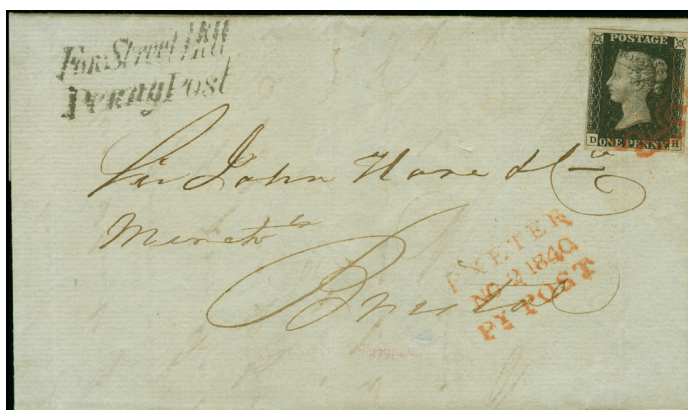 Fore Street Hill
Penny Post
POSTAGE
D ONE PENNY H
Sir John Hare & Co
Merchts
Bristol
EXETER
NO 2 1840
PY POST